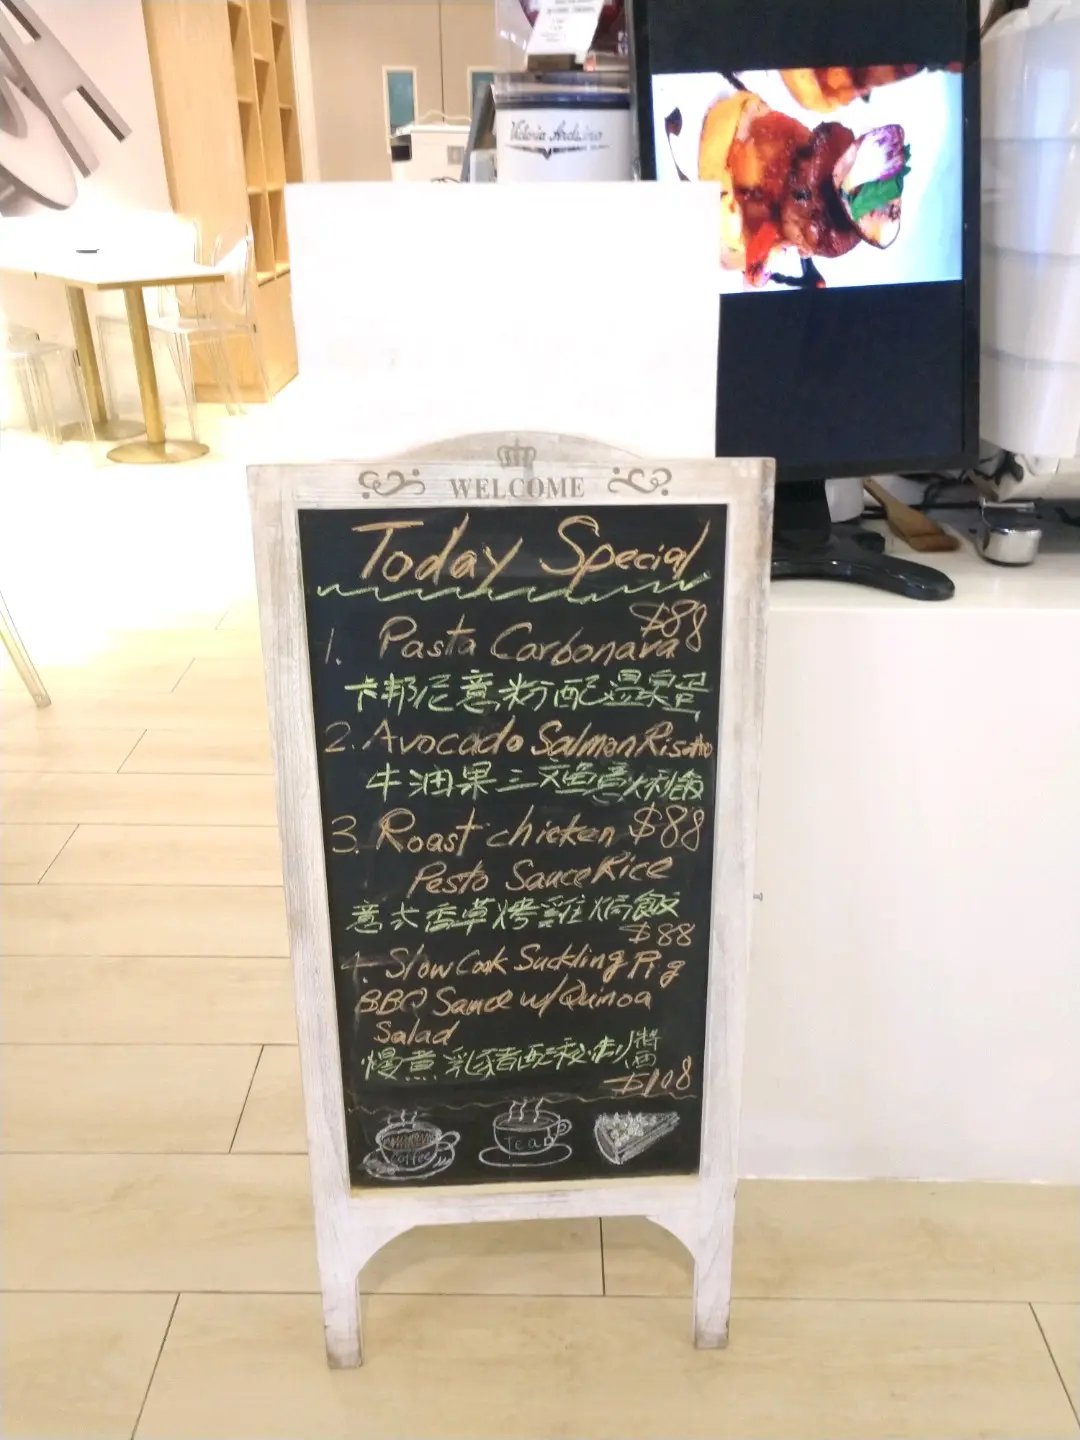 Victoria Arduino
WELCOME
Today Special
$88
1. Pasta Carbonara
卡邦尼意粉配溫泉蛋
2. Avocado Salmon Risotto
牛油果三文魚意大利飯
3. Roast chicken $88
Pesto Sauce Rice
意大香草烤雞焗飯
$88
4. Slow Cook Suckling Pig
BBQ Sauce w/ Quinoa
Salad
慢煮乳豬配秘制醬
$108
Coffee
Tea